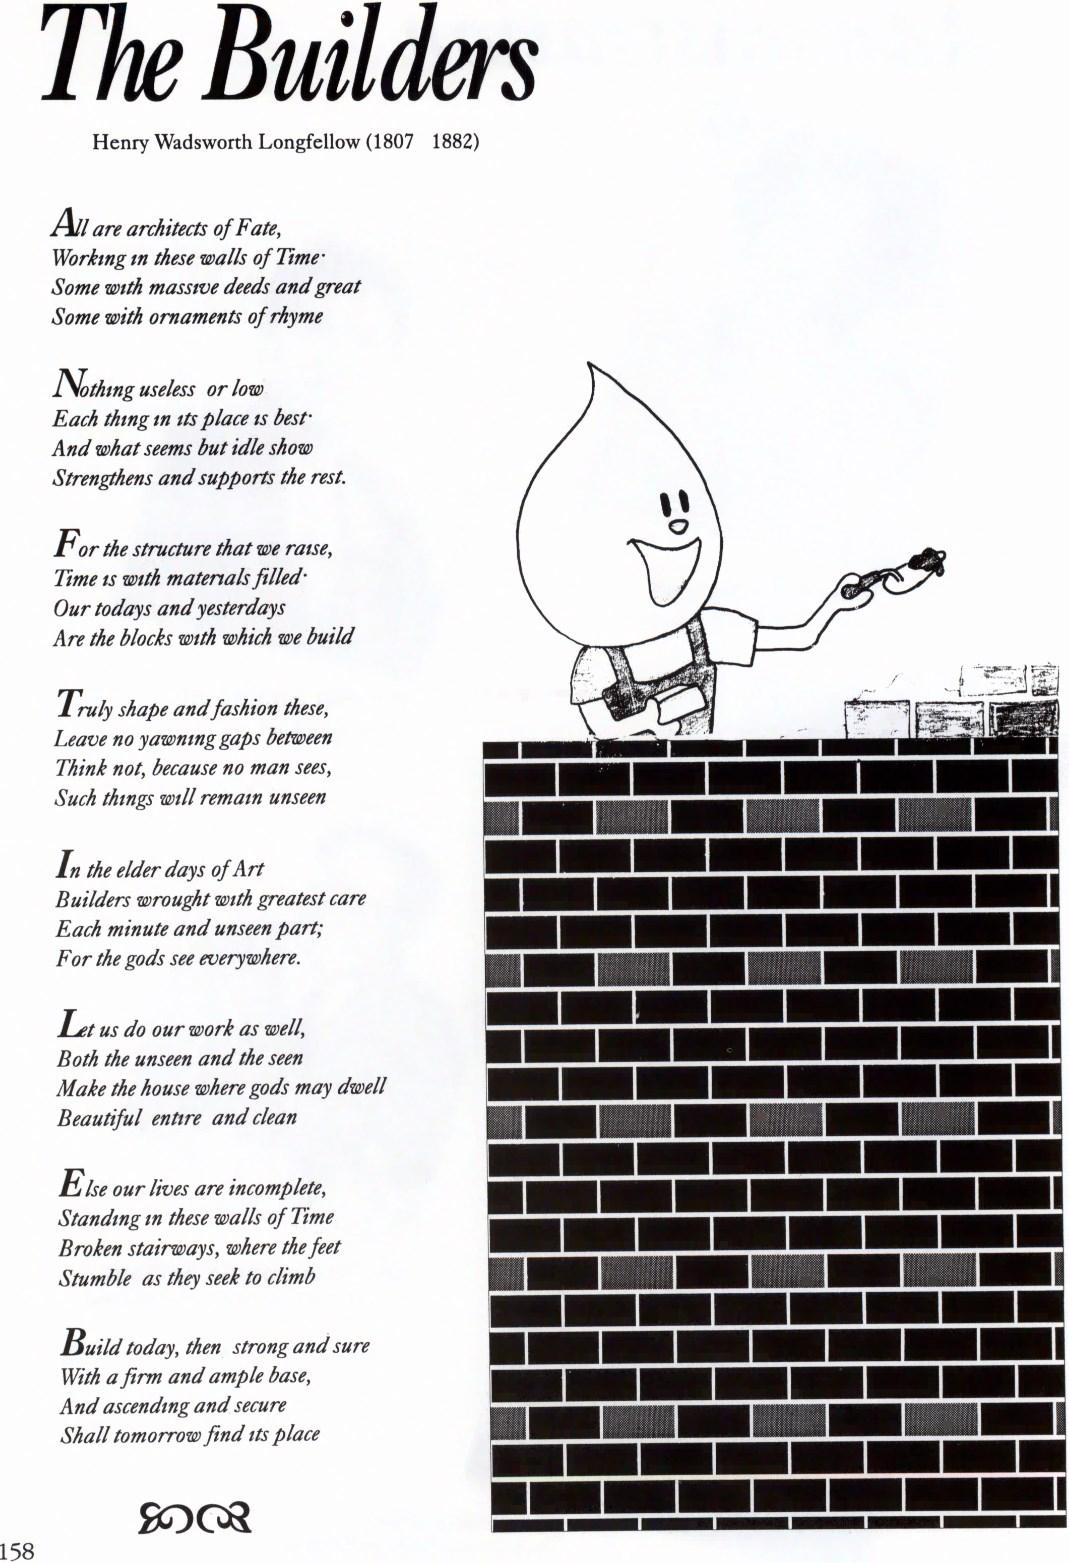 The Builders
Henry Wadsworth Longfellow (1807 1882)
All are architects of Fate,
Working in these walls of Time·
Some with massive deeds and great
Some with ornaments of rhyme
Nothing useless or low
Each thing in its place is best·
And what seems but idle show
Strengthens and supports the rest.
For the structure that we raise,
Time is with materials filled·
Our todays and yesterdays
Are the blocks with which we build
Truly shape and fashion these,
Leave no yawning gaps between
Think not, because no man sees,
Such things will remain unseen
In the elder days of Art
Builders wrought with greatest care
Each minute and unseen part;
For the gods see everywhere.
Let us do our work as well,
Both the unseen and the seen
Make the house where gods may dwell
Beautiful entire and clean
Else our lives are incomplete,
Standing in these walls of Time
Broken stairways, where the feet
Stumble as they seek to climb
Build today, then strong and sure
With a firm and ample base,
And ascending and secure
Shall tomorrow find its place
158